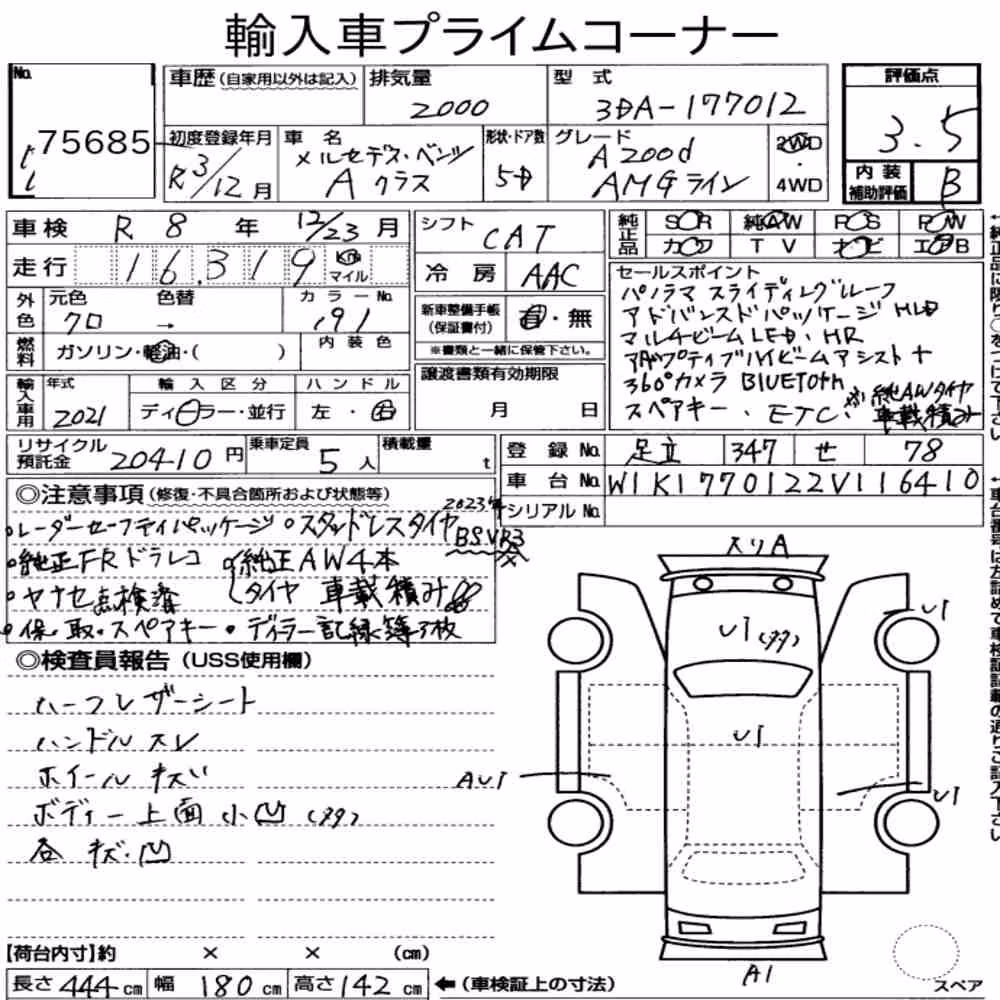 輸入車プライムコーナー
No.
75685
車歴 (自家用以外は記入)
排気量
2000
型式
3DA-177012
評価点
3.5
初度登録年月
R3/12月
車名
メルセデス・ベンツ
Aクラス
形状・ドア数
5D
グレード
A200d
AMGライン
2WD
・
4WD
内装
補助評価
B
車検 R 8 年 12/23 月
走行 16,319 Km
マイル
シフト CAT
冷房 AAC
純正品
SR 純AW PS PW
カワ TV ナビ エアB
外色
元色 色替
クロ →
カラーNo.
191
燃料
ガソリン・軽油・( )
内装色
新車整備手帳
(保証書付)
有・無
※書類と一緒に保管下さい。
セールスポイント
パノラマスライディングルーフ
アドバンスドパッケージ HUD
マルチビームLED.HR
アダプティブハイビームアシスト+
360°カメラ BlUETOTH
スペアキー、ETC、※純AWタイヤ
車載積み
輸入車用
年式
2021
輸入区分
ディーラー・並行
ハンドル
左・右
譲渡書類有効期限
月 日
リサイクル
預託金
20410円
乗車定員
5人
積載量
t
登録No. 足立 347 せ 78
車台No. W1K1770122V116410
シリアルNo.
◎注意事項 (修復・不具合箇所および状態等)
2023年
・レーダーセーフティパッケージ ・スタッドレスタイヤ
BSVR3
・純正FRドラレコ 純正AW4本
・ヤナセ点検書 タイヤ 車載積み
・保・取・スペアキー・ディーラー記録簿3枚
◎検査員報告 (USS使用欄)
ハーフレザーシート
ハンドルスレ
ホイールキズ
ボディー上面小凹(タタ)
各キズ・凹
入リA
U1
U1(タタ)
U1
AU1
U1
A1
スペア
【荷台内寸】約 × × (cm)
長さ 444 cm 幅 180 cm 高さ 142 cm ←(車検証上の寸法)
↑純正品に限り○をつけて下さい。
↑車台番号は左詰めで車検証記載の通りご記入下さい。